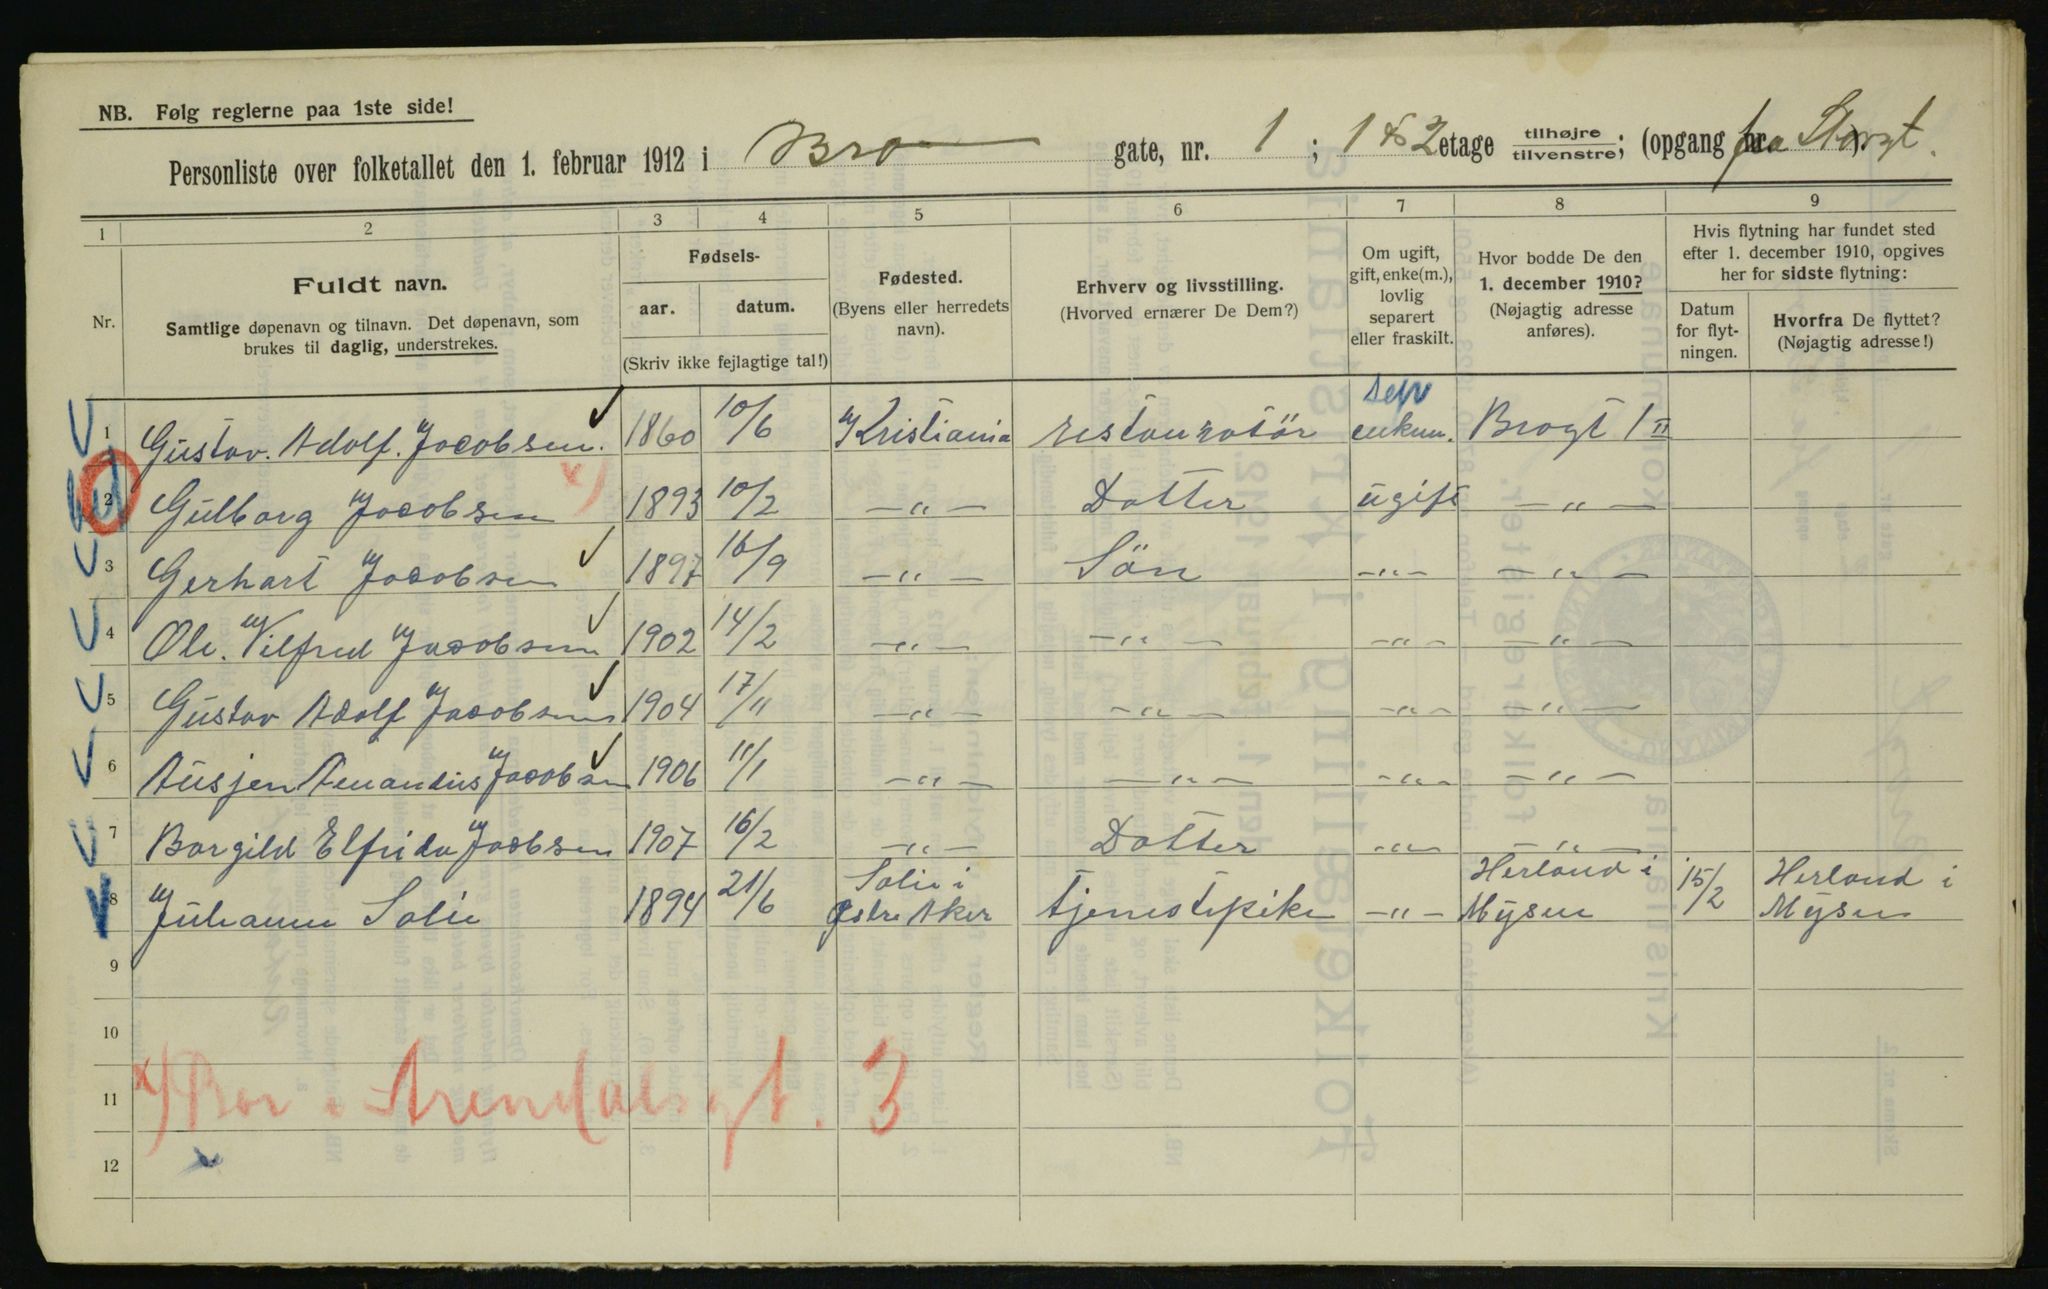 NB. Følg reglerne paa 1ste side!
Personliste over folketallet den 1. februar 1912 i Bro gate, nr. 1 ; 1 & 2 etage tilhøjre tilvenstre; (opgang nr. fra Storgt.
1 2 3 4 5 6 7 8 9
Nr.
Fuldt navn.
Samtlige døpenavn og tilnavn. Det døpenavn, som
brukes til daglig, understrekes.
Fødsels-
aar. datum.
(Skriv ikke fejlagtige tal!)
Fødested.
(Byens eller herredets
navn).
Erhverv og livsstilling.
(Hvorved ernærer De Dem?)
Om ugift,
gift, enke(m.),
lovlig
separert
eller fraskilt.
Hvor bodde De den
1. december 1910?
(Nøjagtig adresse
anføres).
Hvis flytning har fundet sted
efter 1. december 1910, opgives
her for sidste flytning:
Datum
for flyt-
ningen.
Hvorfra De flyttet?
(Nøjagtig adresse!)
sep
1 Gustav. Adolf. Jacobsen. 1860 10/6 Kristiania restauratör enkem. Brogt 1 II
2 Gulborg Jacobsen x) 1893 10/2 — " — Datter ugift — " —
3 Gerhart Jacobsen 1897 16/9 — " — Sön — " — — " —
4 Ole. Vilfred Jacobsen 1902 14/2 — " — — " — — " — — " —
5 Gustav Adolf Jacobsen 1904 17/11 — " — — " — — " — — " —
6 Ausjen Amandus Jacobsen 1906 11/1 — " — — " — — " — — " —
7 Borgild Elfrida Jacobsen 1907 16/2 — " — Datter — " — — " —
8 Juhanne Solie 1894 21/6 Solie i Østre Aker tjenestepike — " — Herland i Mysen 15/2 Herland i Mysen
9
10
11 x) Bor i Arendalsgt. 3
12